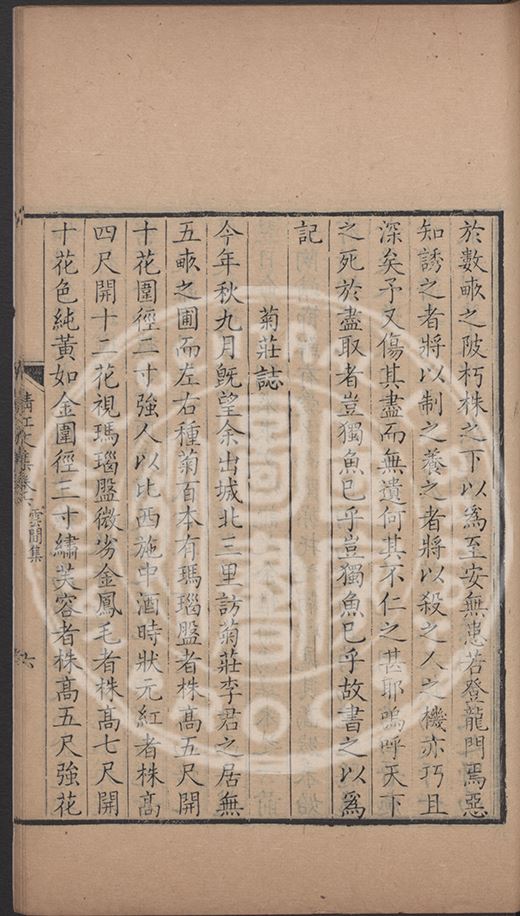 於數畝之陂朽株之下以爲至安無患若登龍門焉惡
知誘之者將以制之養之者將以殺之人之機亦巧且
深矣予又傷其盡而無遺何其不仁之甚耶嗚呼天下
之死於盡取者豈獨魚已乎豈獨魚已乎故書之以爲
記
菊莊誌
今年秋九月旣望余出城北三里訪菊莊李君之居無
五畝之圃而左右種菊百本有瑪瑙盤者株高五尺開
十花圍徑二寸強人以比西施中酒時狀元紅者株高
四尺開十二花視瑪瑙盤微劣金鳳毛者株高七尺開
十花色純黃如金圍徑三寸繡芙容者株高五尺強花
清江文集卷六 雲間集
六